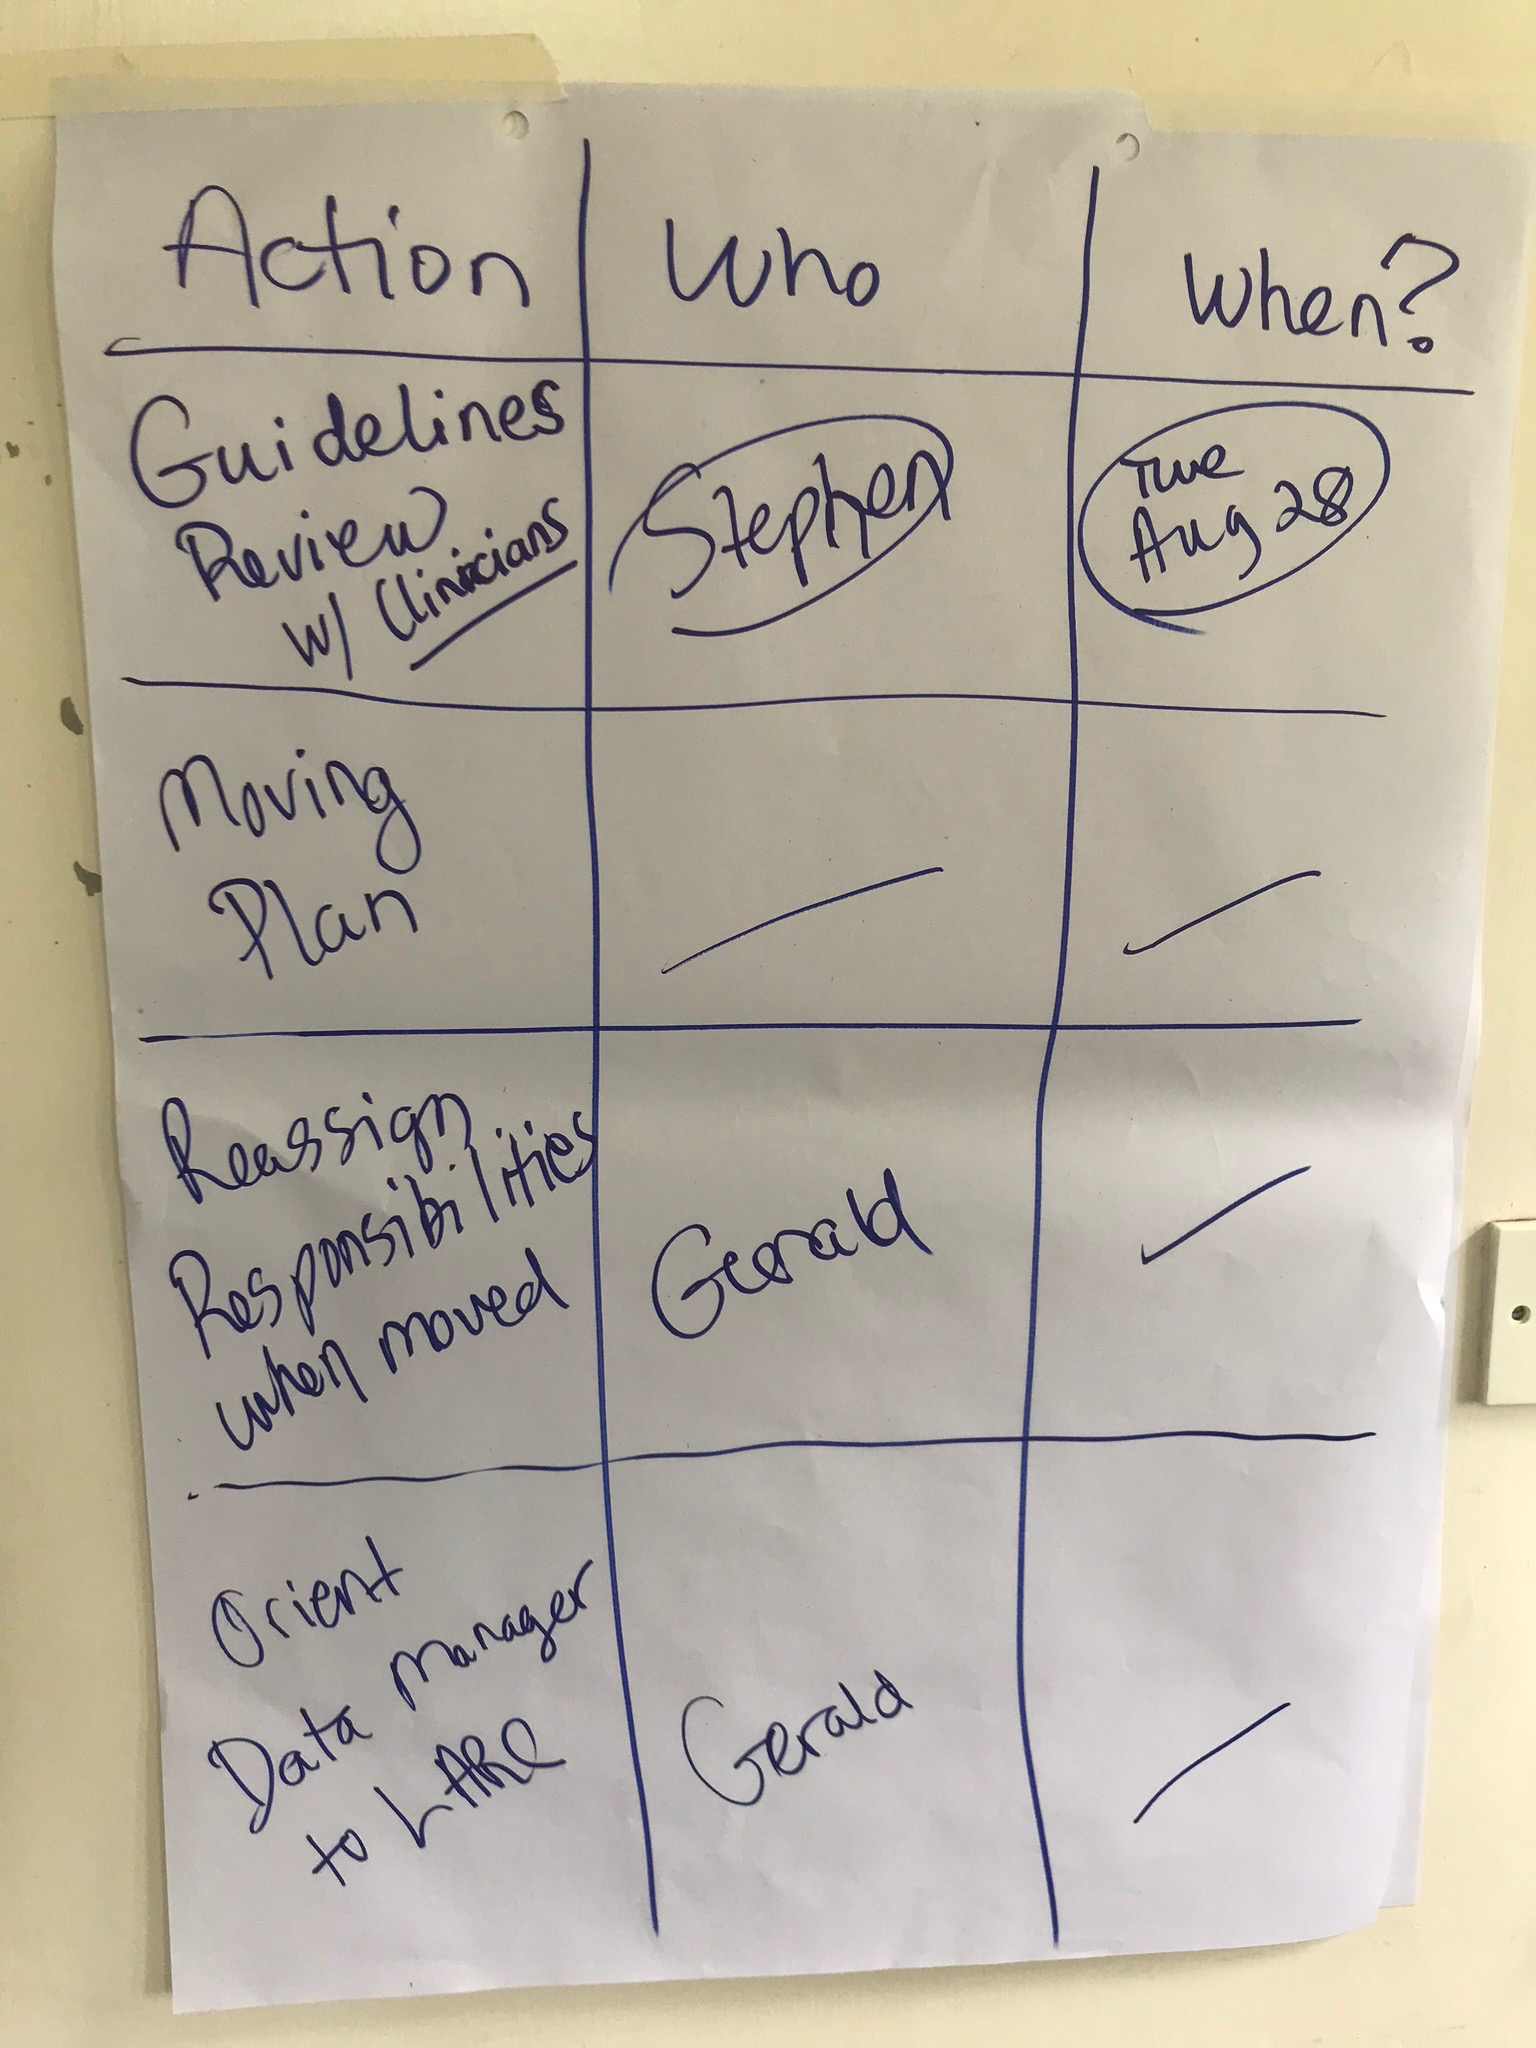 Action Who When?
Guidelines
Review
w/ Clinicians
Stephen
Tue
Aug 28
Moving
Plan
Reassign
Responsibilities
when moved
Gerald
Orient
Data Manager
to LARC
Gerald